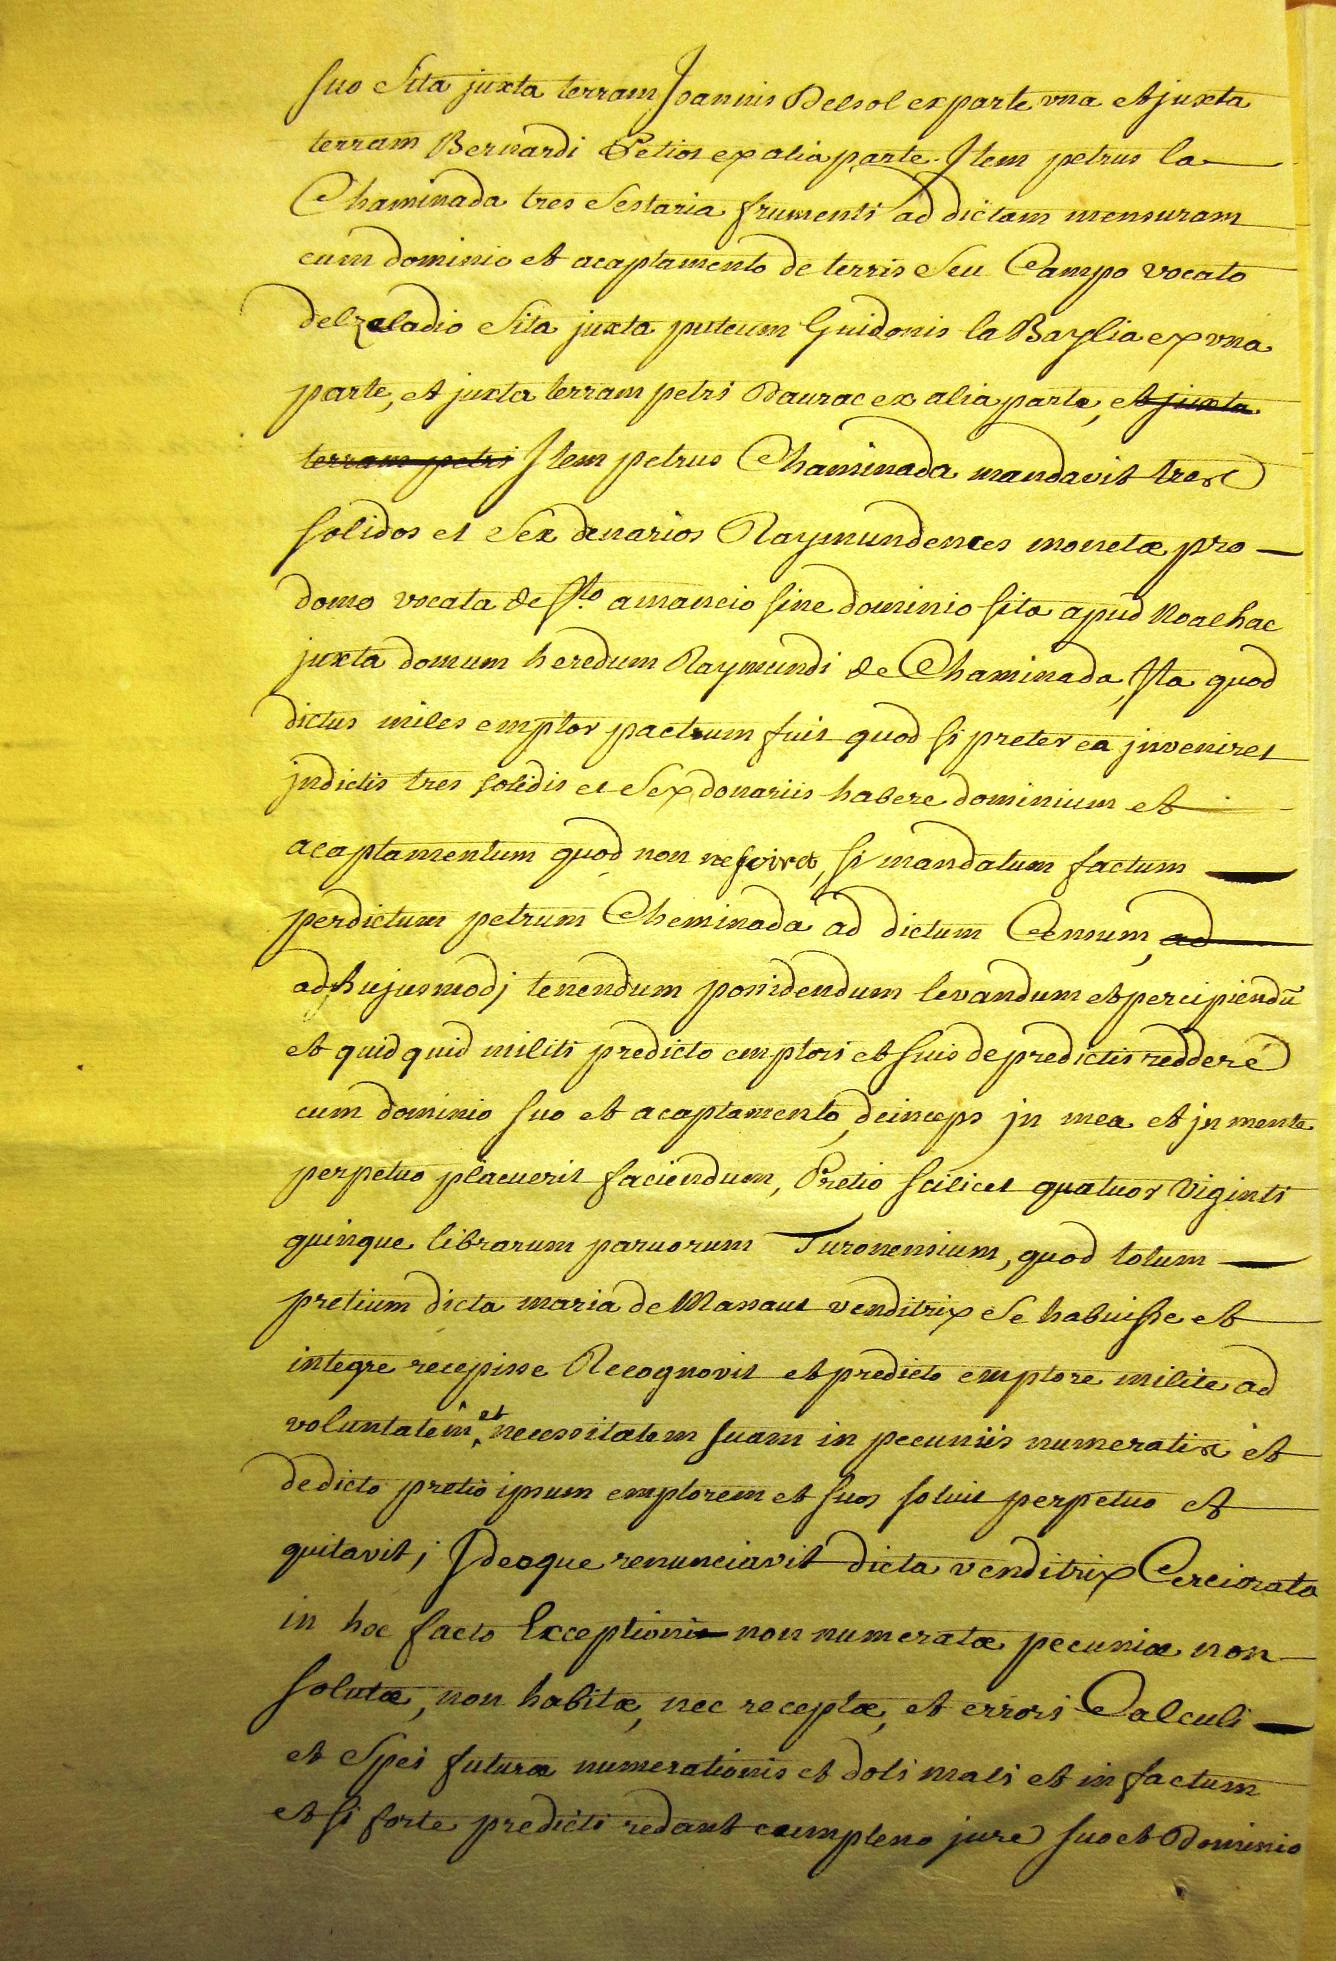 suo Sita juxta terram Joannis Delsol ex parte vna et juxta
terram Bernardi Petios ex alia parte. Item petrus la
Chaminada tres Sestaria frumenti ad dictam mensuram
cum dominio et acaptamento de terris Seu Campo vocato
Sita juxta puteum Guidonis la Baylia ex vna
parte, et juxta terram petri Daurac ex alia parte, et juxta
terram petri Item petrus Chaminada mandavit tres
solidos et Sex denarios Raymundences monetæ pro
domo vocata de Sto amancio sine dominio sita apud Noalhac
juxta domum heredum Raymundi de Chaminada, Ita quod
dictus miles emptor pactum fuit quod si preter ea jnveniret
jndictis tres solidis et Sex donariis habere dominium et
acaptamentum quod non nesciret, si mandatum factum
perdictum petrum Cheminada ad dictum Censum, ad
ad hujusmodj tenendum possidendum levandum et percipiendū
et quid quid militi predicto emptori et suis de predictis reddere
cum dominio suo et acaptamento, deinceps jn mea et jn mente
perpetuo placuerit faciendum, Pretio scilicet quatuor Viginti
quinque librarum paruorum Turonensium, quod totum
pretium dicta maria de Massaut venditrix Se habuisse et
integre recepisse Recognovit et predicto emptore milite ad
voluntatem et necessitatem suam in pecuniis numeratis et
de dicto pretio ipsum emptorem et suos soluit perpetuo et
quitavit; Ideoque renunciavit dicta venditrix Cerciorata
in hoc facto Exceptioni non numeratæ pecuniæ non
solutæ, non habitæ, nec receptæ, et errori Calculi
et Spei futuræ numerationis et doli mali et in factum
et si forte predicti redant cum pleno jure suo et Dominio